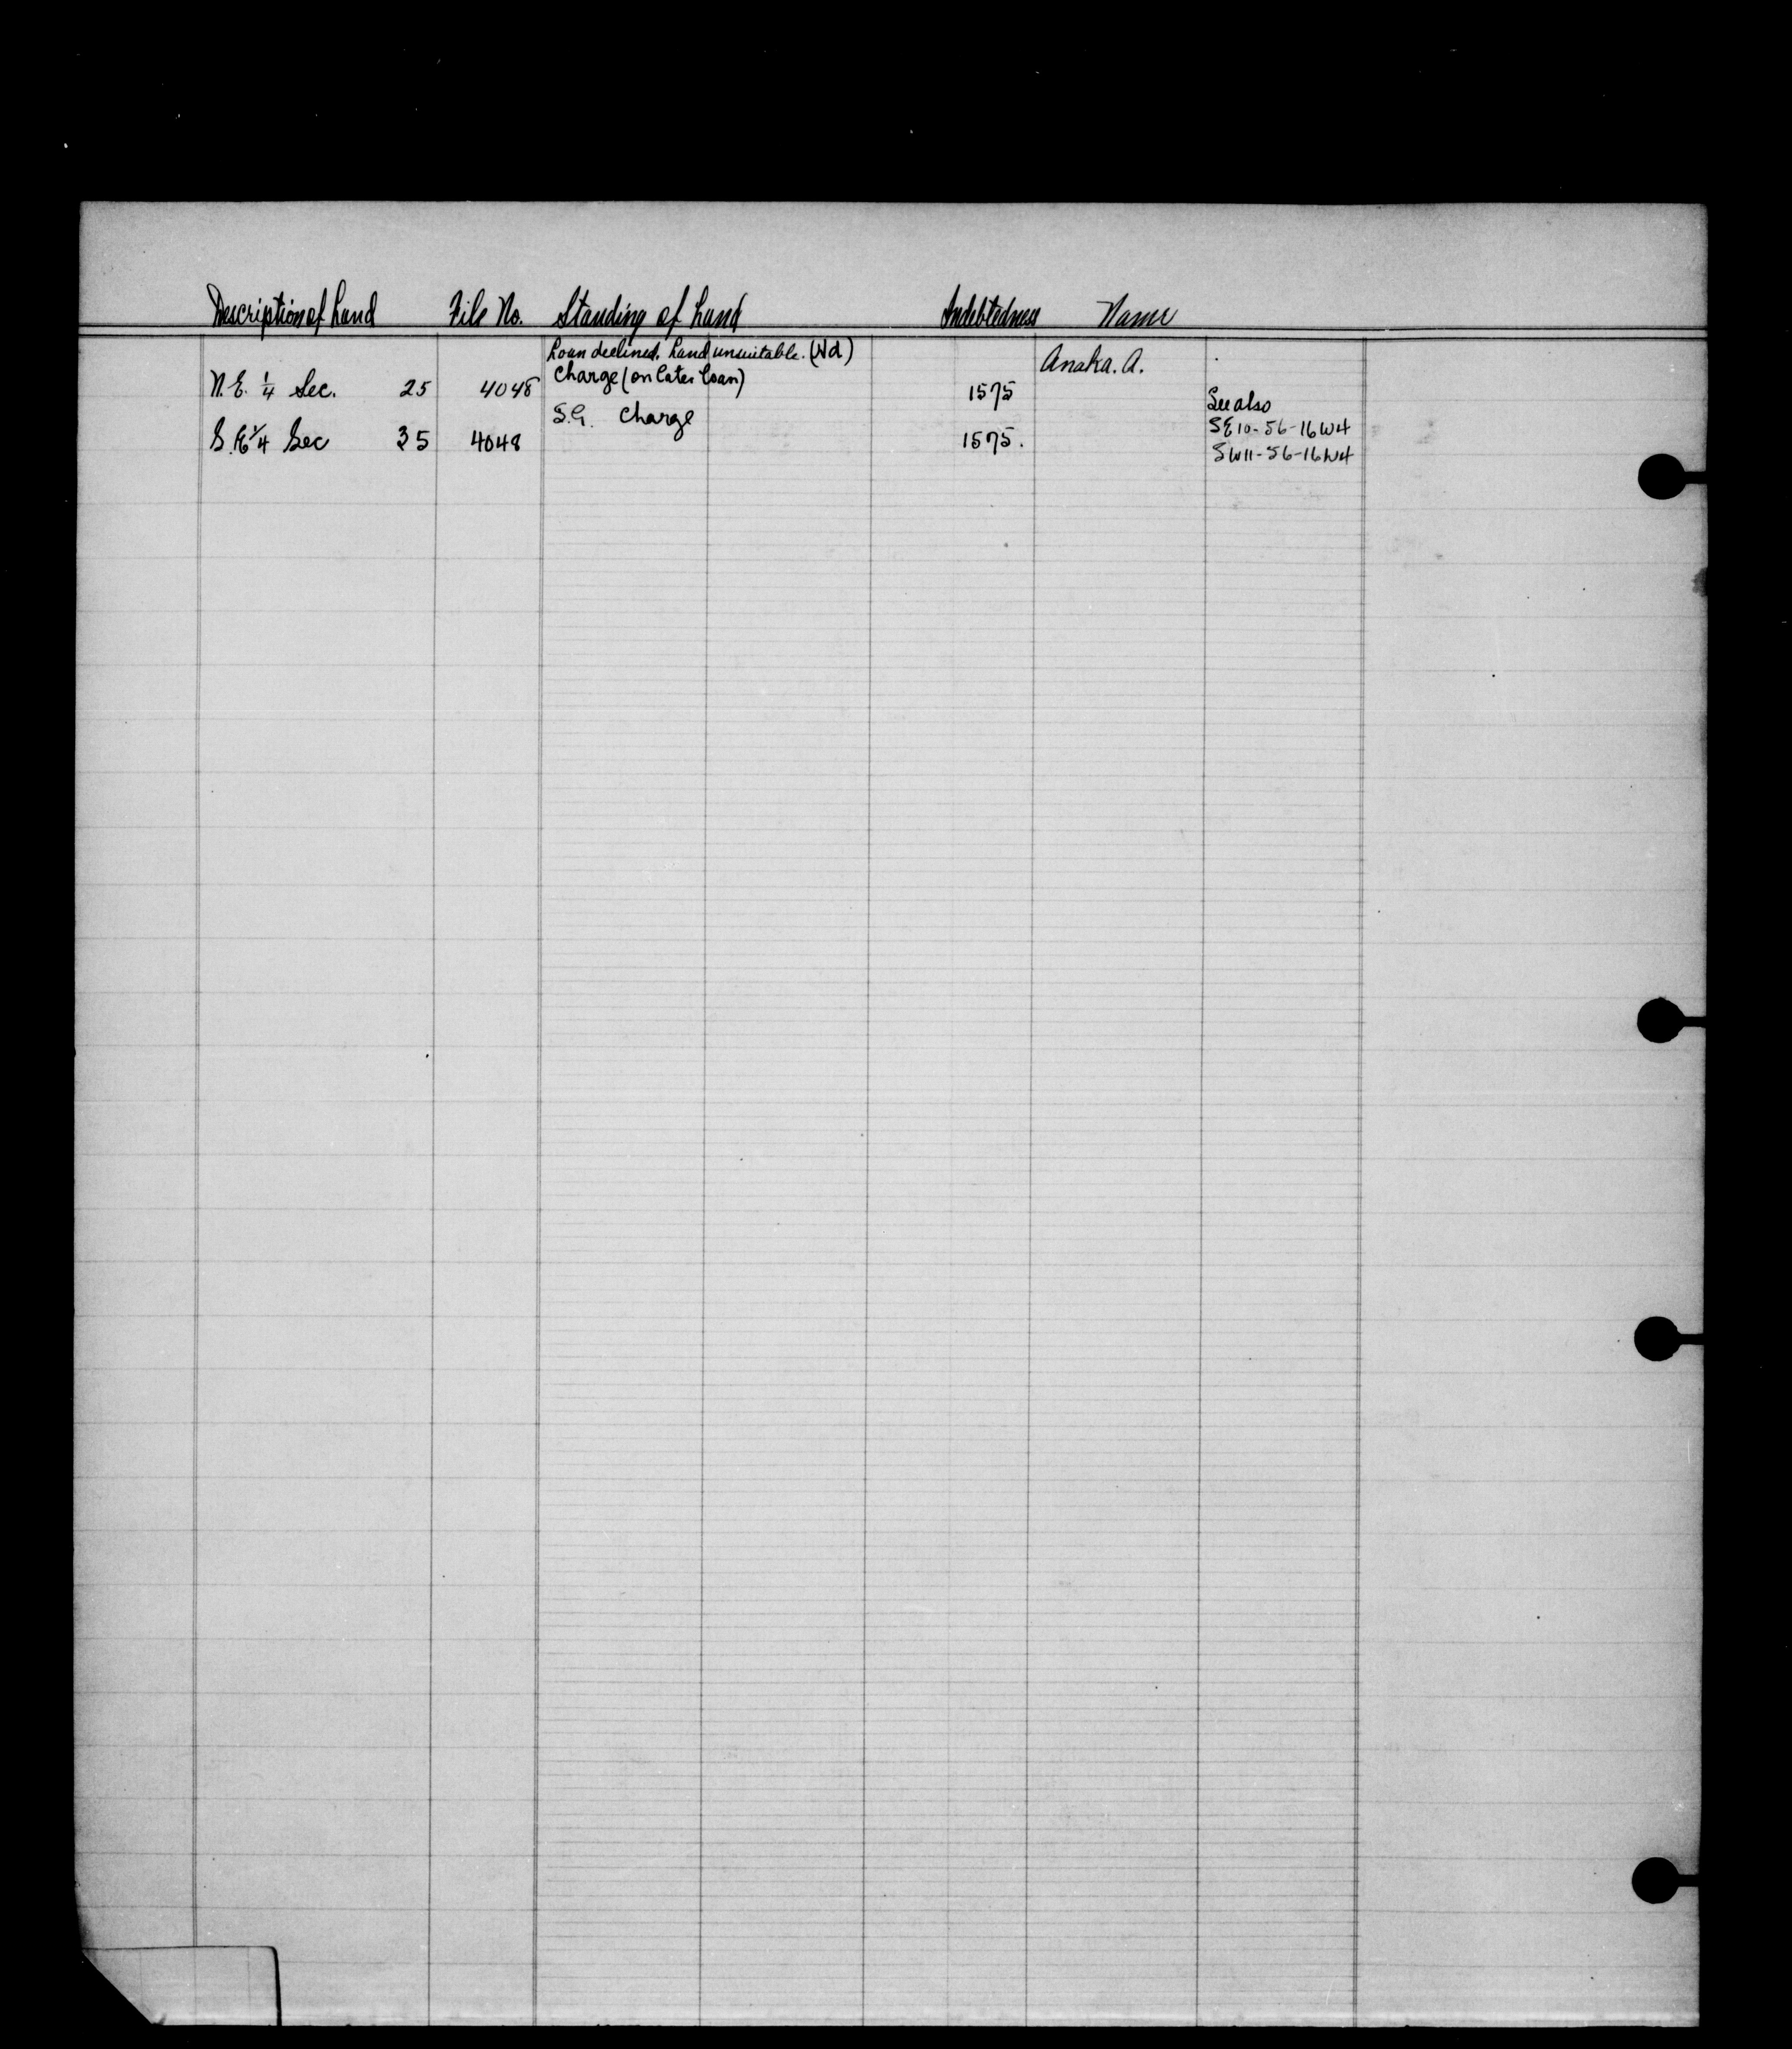 Description of Land File No. Standing of Land Indebtedness Name
Loan declined. Land unsuitable. (Wd) Anaka. A.
N.E. 1/4 Sec. 25 4048 Charge (on later loan) 1575
S.G. Charge See also
S.E 1/4 Sec 35 4048 1575. SE10-56-16W4
SW11-56-16W4